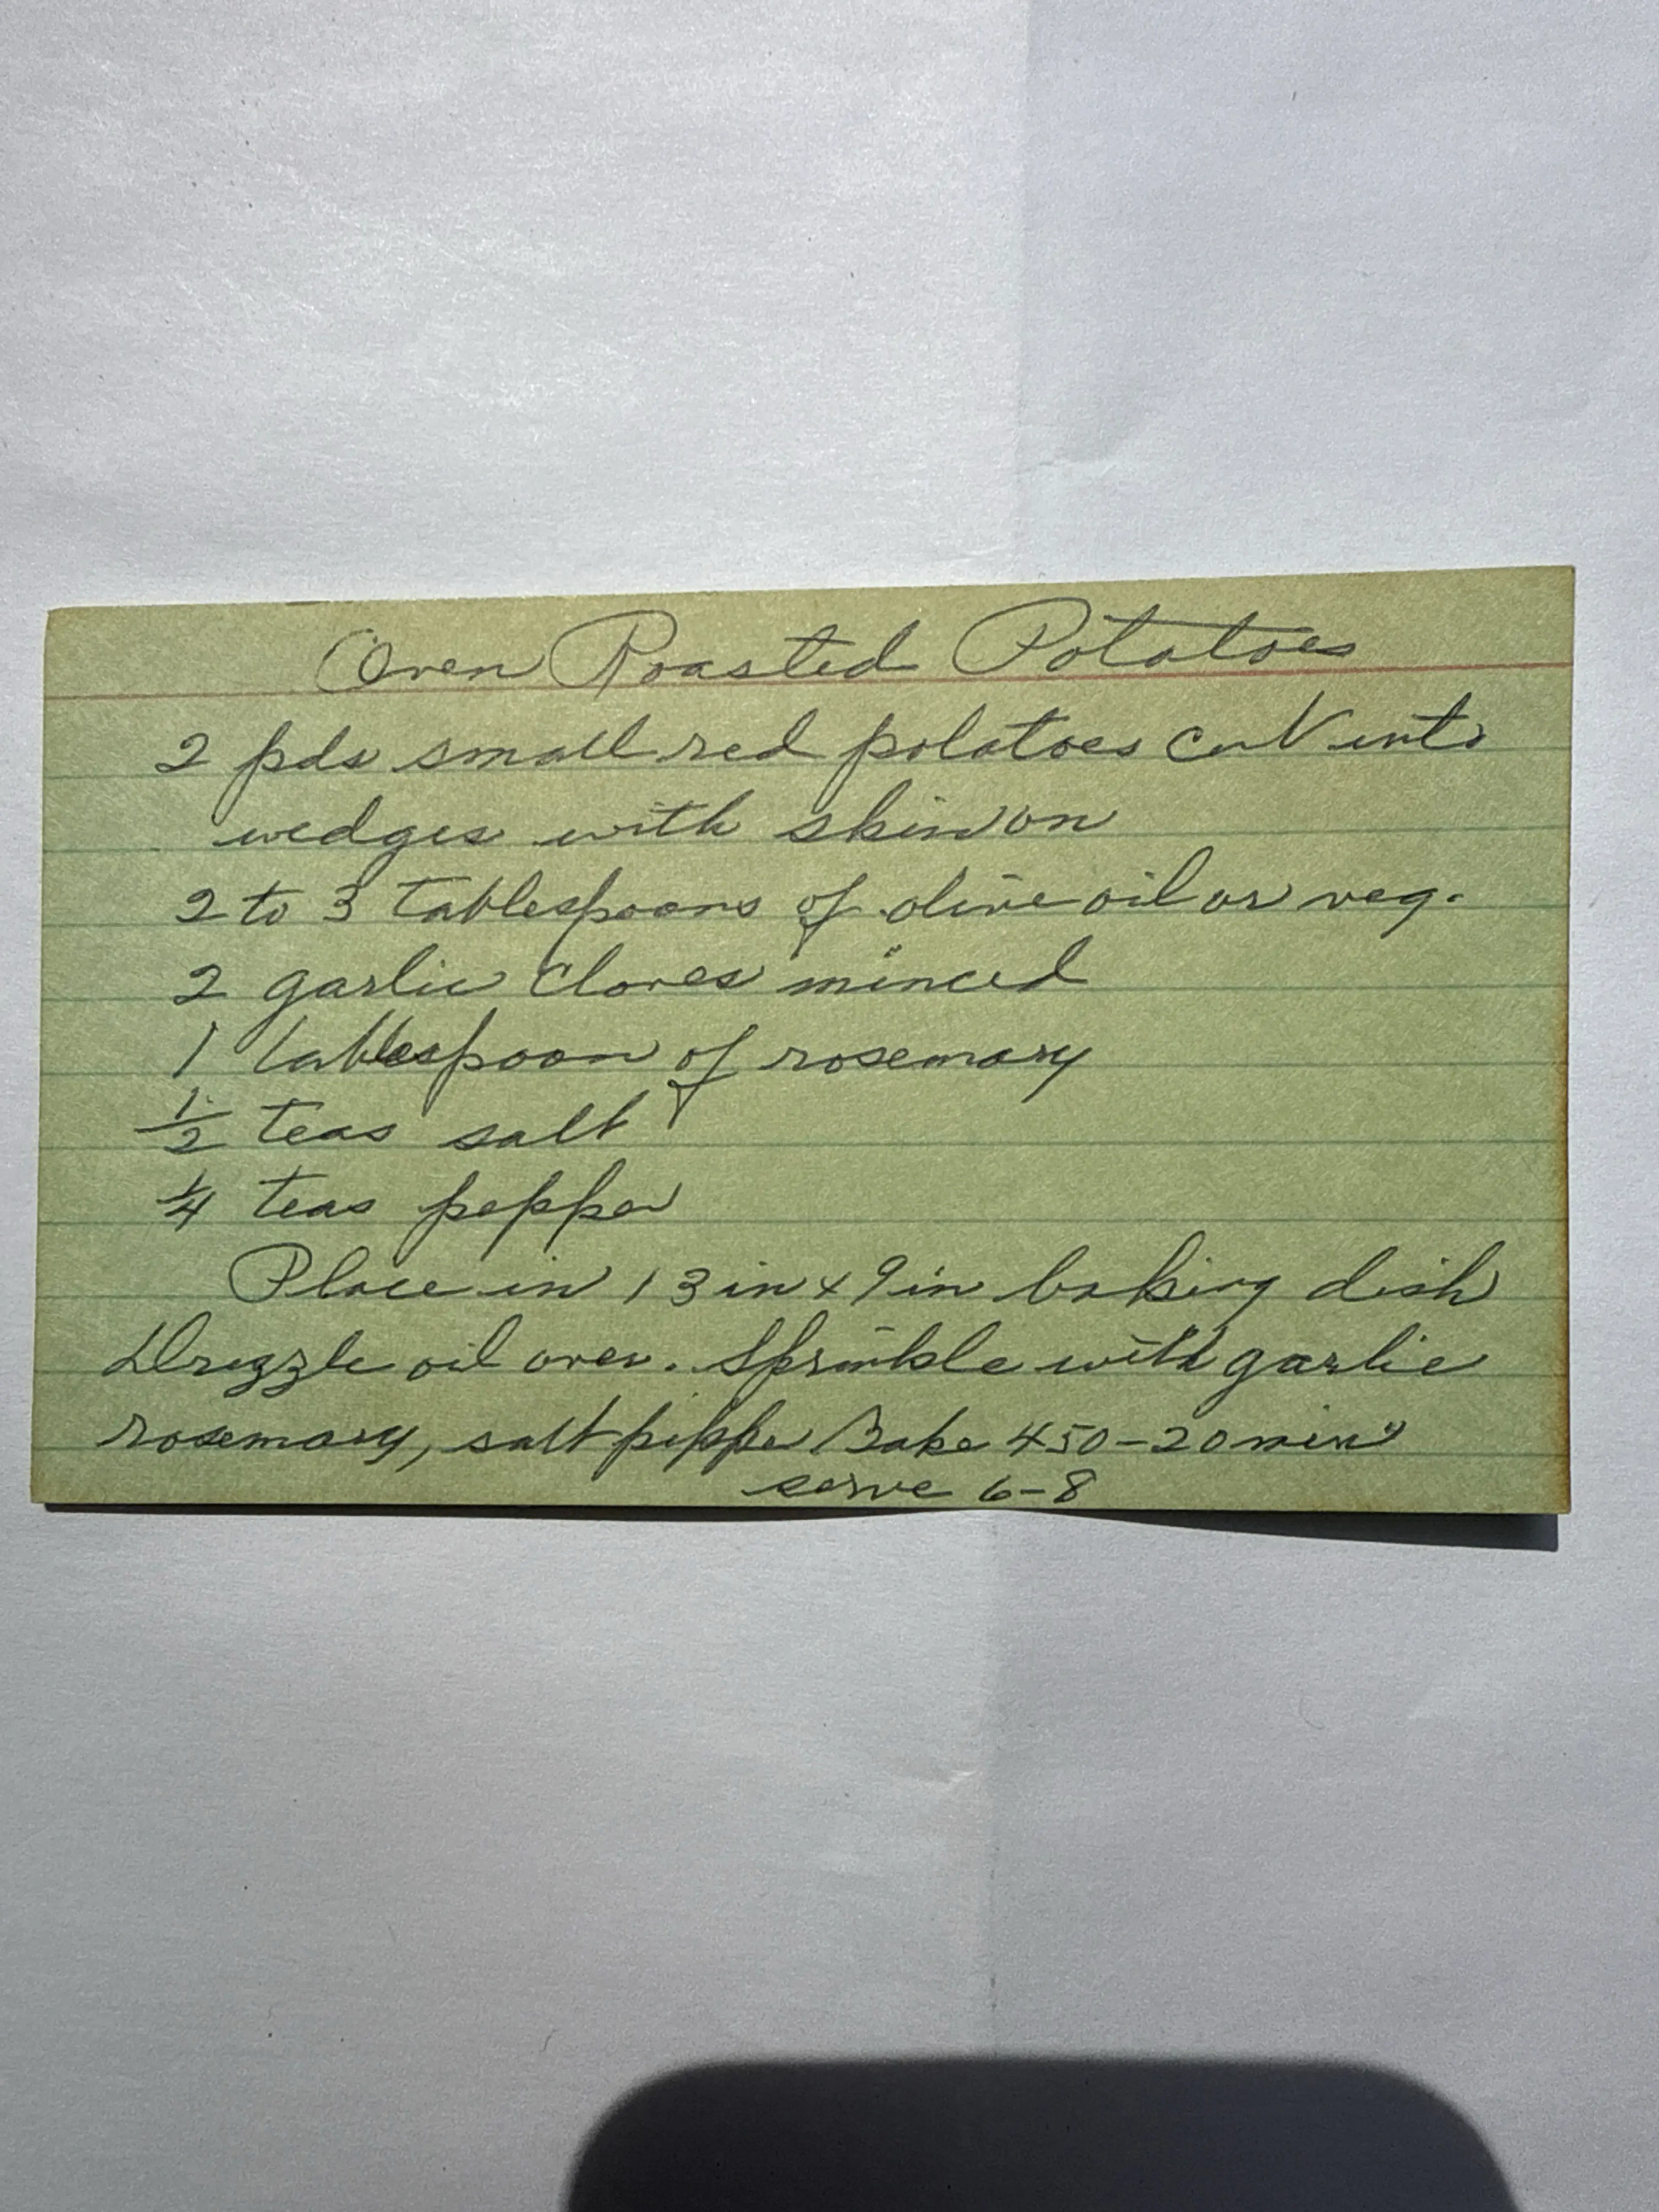 Oven Roasted Potatoes
2 pds small red potatoes cut into
wedges with skin on
2 to 3 tablespoons of olive oil or veg.
2 garlic cloves minced
1 tablespoon of rosemary
1/2 teas salt
1/4 teas pepper
Place in 13 in x 9 in baking dish
Drizzle oil over. Sprinkle with garlic
rosemary, salt pepper Bake 450-20 min
serve 6-8